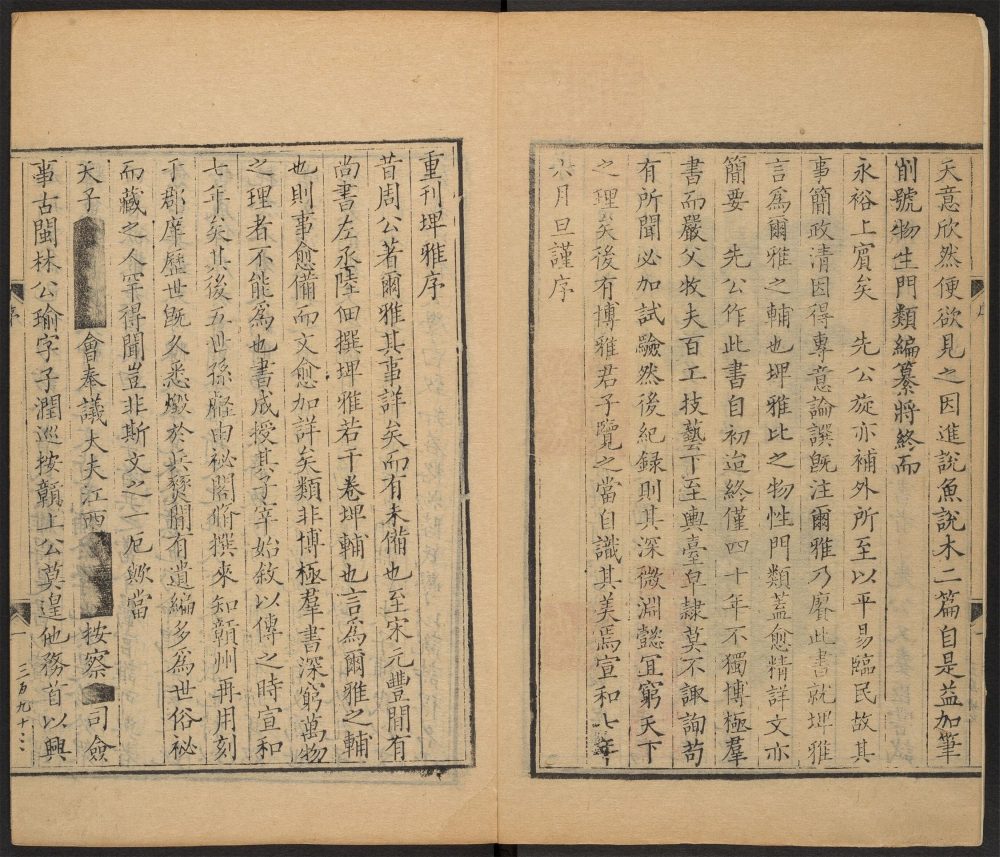 天意欣然便欲見之因進說魚說木二篇自是益加筆
削號物性門類編纂將終而
永裕上賓矣　先公旋亦補外所至以平易臨民故其
事簡政清因得專意論譔既注爾雅乃賡此書就埤雅
言爲爾雅之輔也埤雅比之物性門類蓋愈精詳文亦
簡要　先公作此書自初迨終僅四十年不獨博極羣
書而嚴父牧夫百工技藝下至輿臺皁隸莫不諏詢苟
有所聞必加試驗然後紀録則其深微淵懿宜窮天下
之理矣後有博雅君子覽之當自識其美焉宣和七年
六月旦謹序
重刊埤雅序
昔周公著爾雅其事詳矣而有未備也至宋元豐間有
尚書左丞陸佃撰埤雅若干卷埤輔也言爲爾雅之輔
也則事愈備而文愈加詳矣類非博極羣書深窮萬物
之理者不能爲也書成授其子宰始敘以傳之時宣和
七年矣其後五世孫壑由祕閣脩撰來知贛州再用刻
于郡庠歷世既久悉燬於兵燹間有遺編多爲世俗祕
而藏之人罕得聞豈非斯文之一厄歟當
天子　會奉議大夫江西　按察　司僉
事古閩林公瑜字子潤巡按贛上公莫遑他務首以興
序
三百九十三